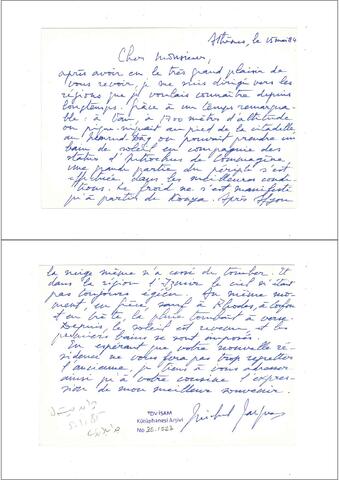 Athènes, le 15 mai 84
Cher Monsieur,
après avoir eu le très grand plaisir de
vous revoir, je me suis dirigé vers les
régions que je voulais connaître depuis
longtemps. Grâce à un temps remarqua-
ble : à Van, à 1700 mètres d'altitude
on pique-niquait au pied de la citadelle,
au Nemrud Dağ on pouvait prendre un
bain de soleil en compagnie des
statues d'Antiochus de Commagène,
une grande partie du périple s'est
effectuée dans les meilleures condi-
tions. Le froid ne s'est manifesté
qu'à partir de Konya. Après Afyon
la neige même n'a cessé de tomber. Et
dans la région d'Izmir le ciel n'était
pas toujours égéen. Au même mo-
ment, en Grèce sauf à Rhodes, à Cos
et en Crète, la pluie tombait à verse.
Depuis, le soleil est revenu et les
premiers bains se sont imposés.
En espérant que votre nouvelle ré-
sidence ne vous fera pas trop regretter
l'ancienne, je tiens à vous adresser
ainsi qu'à votre cousine l'expres-
sion de mon meilleur souvenir.
Michel
TDV İSAM
Kütüphanesi Arşivi
No